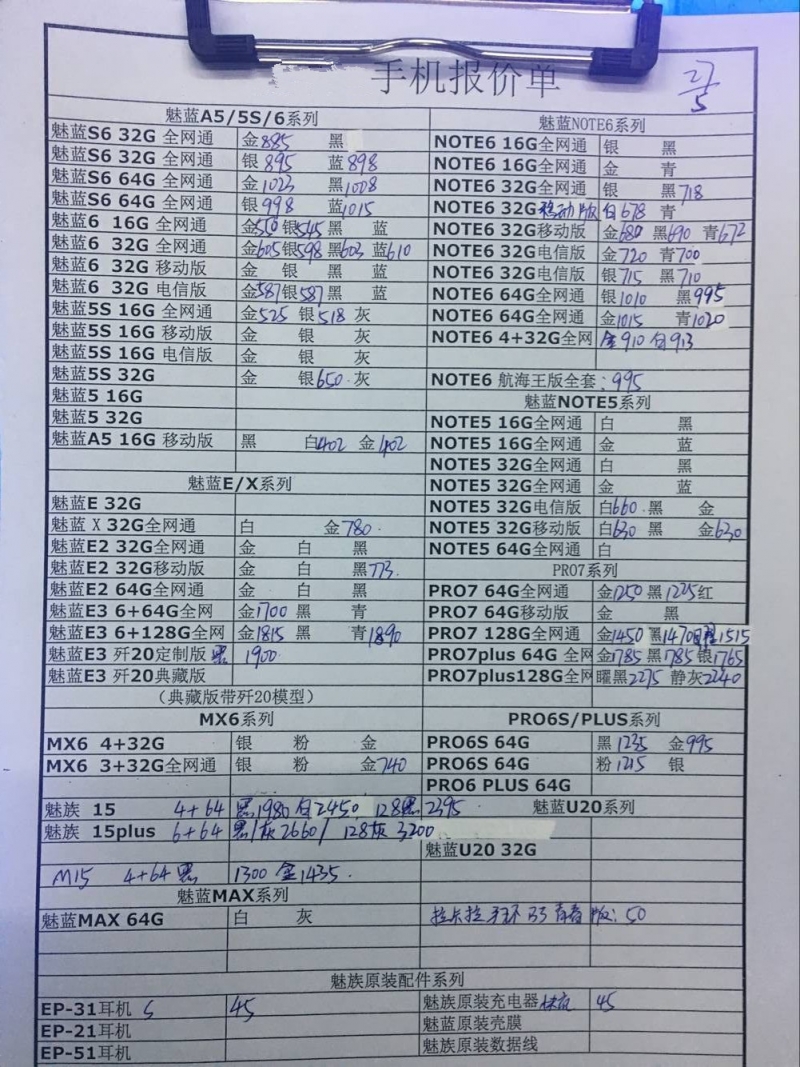 手机报价单
27/5
魅蓝A5/5S/6系列
魅蓝S6 32G 全网通 金885 黑
魅蓝S6 32G 全网通 银895 蓝898
魅蓝S6 64G 全网通 金1023 黑1008
魅蓝S6 64G 全网通 银998 蓝1015
魅蓝6 16G 全网通 金550 银545 黑 蓝
魅蓝6 32G 全网通 金605 银598 黑603 蓝610
魅蓝6 32G 移动版 金 银 黑 蓝
魅蓝6 32G 电信版 金587 银587 黑 蓝
魅蓝5S 16G 全网通 金525 银518 灰
魅蓝5S 16G 移动版 金 银 灰
魅蓝5S 16G 电信版 金 银 灰
魅蓝5S 32G 金 银650 灰
魅蓝5 16G
魅蓝5 32G
魅蓝A5 16G 移动版 黑 白402 金402
魅蓝E/X系列
魅蓝E 32G
魅蓝X 32G全网通 白 金780
魅蓝E2 32G全网通 金 白 黑
魅蓝E2 32G移动版 金 白 黑773
魅蓝E2 64G全网通 金 白 黑
魅蓝E3 6+64G全网 金1700 黑 青
魅蓝E3 6+128G全网 金1815 黑 青1890
魅蓝E3 歼20定制版 黑 1900
魅蓝E3 歼20典藏版
（典藏版带歼20模型）
MX6系列
MX6 4+32G 银 粉 金
MX6 3+32G全网通 银 粉 金740
魅族 15 4+64 黑1980 白2450 128黑2395
魅族 15plus 6+64 黑/灰2660/ 128灰3200
M15 4+64黑 1300 金1435
魅蓝MAX系列
魅蓝MAX 64G 白 灰
魅蓝NOTE6系列
NOTE6 16G全网通 银 黑
NOTE6 16G全网通 金 青
NOTE6 32G全网通 银 黑718
NOTE6 32G移动版 白678 青
NOTE6 32G移动版 金680 黑690 青672
NOTE6 32G电信版 金720 青700
NOTE6 32G电信版 银715 黑710
NOTE6 64G全网通 银1010 黑995
NOTE6 64G全网通 金1015 青1020
NOTE6 4+32G全网 金910 白913
NOTE6 航海王版全套：995
魅蓝NOTE5系列
NOTE5 16G全网通 白 黑
NOTE5 16G全网通 金 蓝
NOTE5 32G全网通 白 黑
NOTE5 32G全网通 金 蓝
NOTE5 32G电信版 白660 黑 金
NOTE5 32G移动版 白630 黑 金630
NOTE5 64G全网通 白
PRO7系列
PRO7 64G全网通 金1250 黑1225 红
PRO7 64G移动版 金 黑
PRO7 128G全网通 金1450 黑1470 1515
PRO7plus 64G 全网 金1785 黑1785 银1765
PRO7plus128G全网 曜黑2275 静灰2240
PRO6S/PLUS系列
PRO6S 64G 黑1235 金995
PRO6S 64G 粉1215 银
PRO6 PLUS 64G
魅蓝U20系列
魅蓝U20 32G
拉卡拉手环B3青春版：50
魅族原装配件系列
EP-31耳机 45
EP-21耳机
EP-51耳机
魅族原装充电器 45
魅蓝原装壳膜
魅族原装数据线